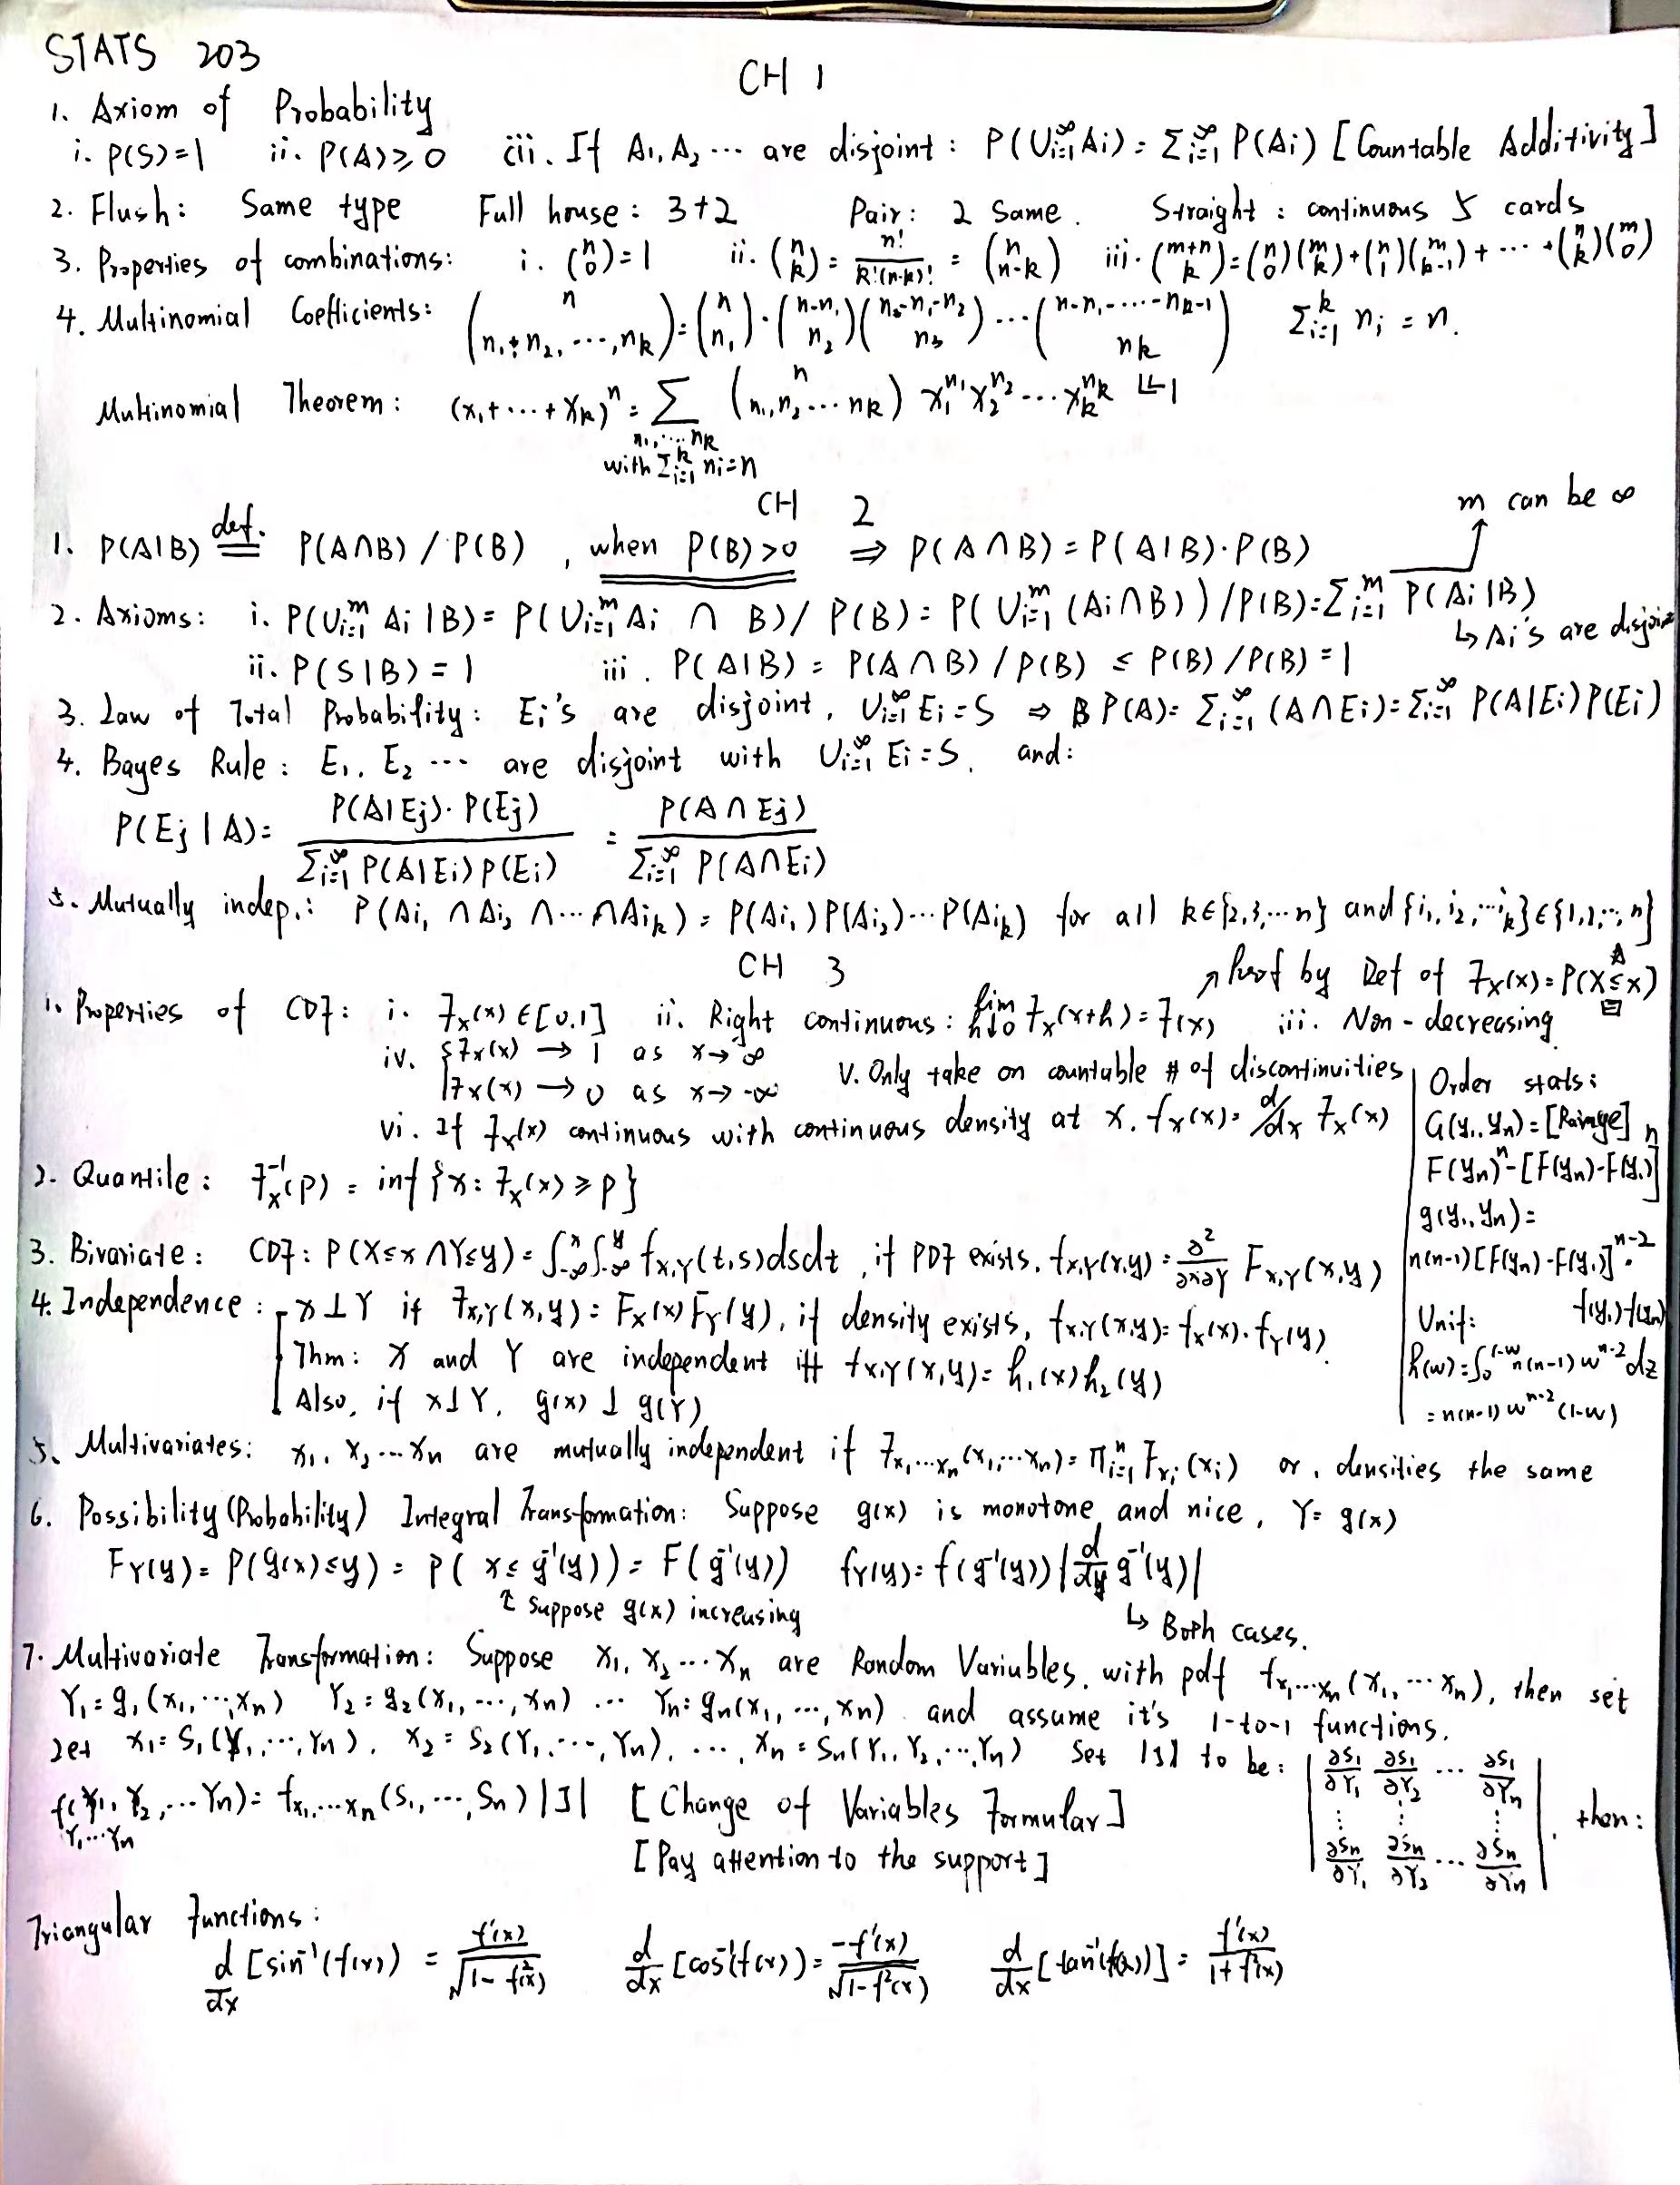 STATS 203
CH 1
1. Axiom of Probability
i. P(S)=1 ii. P(A)≥0 iii. If A₁, A₂ ⋯ are disjoint : P(∪ᵢ₌₁^∞ Aᵢ) = Σᵢ₌₁^∞ P(Aᵢ) [Countable Additivity]
2. Flush : Same type Full house : 3+2 Pair : 2 Same. Straight : continuous 5 cards
3. Properties of combinations: i. (n 0)=1 ii. (n k) = n!/k!(n-k)! = (n n-k) iii. (m+n k) = (n 0)(m k)+(n 1)(m k-1)+ ⋯ +(n k)(m 0)
4. Multinomial Coefficients: (n n₁, n₂, ⋯, nₖ) = (n n₁)·(n-n₁ n₂)(n-n₁-n₂ n₃) ⋯ (n-n₁-⋯-nₖ₋₁ nₖ) Σᵢ₌₁^k nᵢ = n.
Multinomial Theorem : (x₁+⋯+xₖ)ⁿ = Σ (n n₁,n₂⋯nₖ) x₁^n₁ x₂^n₂ ⋯ xₖ^nₖ
n₁,⋯nₖ
with Σᵢ₌₁^k nᵢ=n
CH 2
m can be ∞
1. P(A|B) def. = P(A∩B) / P(B) , when P(B)>0 ⇒ P(A∩B) = P(A|B)·P(B)
2. Axioms : i. P(∪ᵢ₌₁^m Aᵢ |B) = P(∪ᵢ₌₁^m Aᵢ ∩ B)/ P(B) = P(∪ᵢ₌₁^m (Aᵢ∩B)) /P(B) = Σᵢ₌₁^m P(Aᵢ|B)
↳ Aᵢ's are disjoint
ii. P(S|B) = 1 iii. P(A|B) = P(A∩B) / P(B) ≤ P(B) /P(B) = 1
3. Law of Total Probability : Eᵢ's are disjoint, ∪ᵢ₌₁^∞ Eᵢ = S ⇒ P(A) = Σᵢ₌₁^∞ (A∩Eᵢ) = Σᵢ₌₁^∞ P(A|Eᵢ)P(Eᵢ)
4. Bayes Rule : E₁, E₂ ⋯ are disjoint with ∪ᵢ₌₁^∞ Eᵢ = S, and :
P(Eⱼ | A) = P(A|Eⱼ)·P(Eⱼ) / Σᵢ₌₁^∞ P(A|Eᵢ)P(Eᵢ) = P(A∩Eⱼ) / Σᵢ₌₁^∞ P(A∩Eᵢ)
5. Mutually indep.: P(Aᵢ₁ ∩ Aᵢ₂ ∩ ⋯ ∩ Aᵢₖ) = P(Aᵢ₁)P(Aᵢ₂)⋯P(Aᵢₖ) for all k∈{2,3,⋯n} and {i₁, i₂,⋯iₖ}∈{1,2,⋯, n}
CH 3
↗ Proof by Def of Fx(x) = P(X≤x)
1. Properties of CDF : i. Fx(x) ∈[0,1] ii. Right continuous : lim h↓0 Fx(x+h) = F(x) iii. Non-decreasing
iv. {Fx(x) → 1 as x→∞
Fx(x) → 0 as x→ -∞
v. Only take on countable # of discontinuities
vi. If Fx(x) continuous with continuous density at x, fx(x) = d/dx Fx(x)
Order stats :
G(y₁, yn) = [Range]
F(yn)ⁿ-[F(yn)-F(y₁)]ⁿ
g(y₁, yn) =
n(n-1)[F(yn)-F(y₁)]ⁿ⁻²·
f(y₁)f(yn)
Unif :
h(w) = ∫₀^1-w n(n-1) wⁿ⁻² dz
= n(n-1) wⁿ⁻² (1-w)
2. Quantile : Fx⁻¹(p) = inf {x : Fx(x) ≥ p}
3. Bivariate : CDF : P(X≤x ∩ Y≤y) = ∫₋∞^x ∫₋∞^y fx,Y(t,s)dsdt , if PDF exists, fx,Y(x,y) = ∂²/∂x∂Y Fx,Y(x,y)
4. Independence : X⊥Y if Fx,Y(x,y) = Fx(x)FY(y), if density exists, fx,Y(x,y) = fx(x)·fY(y)
Thm : X and Y are independent iff fx,Y(x,y) = h₁(x)h₂(y)
Also, if X⊥Y, g(x) ⊥ g(Y)
5. Multivariates : X₁, X₂ ⋯ Xn are mutually independent if Fx₁⋯xn (x₁,⋯xn) = Πᵢ₌₁ⁿ Fxᵢ(xᵢ) or, densities the same
6. Possibility (Probability) Integral Transformation : Suppose g(x) is monotone and nice, Y = g(x)
FY(y) = P(g(x)≤y) = P( x≤ g⁻¹(y)) = F(g⁻¹(y)) fY(y) = f(g⁻¹(y)) |d/dy g⁻¹(y)|
↑ suppose g(x) increasing
↳ Both cases.
7. Multivariate Transformation : Suppose X₁, X₂ ⋯ Xn are Random Variables, with pdf fx₁⋯xn (x₁, ⋯ xn), then set
Y₁ = g₁(x₁, ⋯, xn) Y₂ = g₂(x₁, ⋯, xn) ⋯ Yn = gn(x₁, ⋯, xn) and assume it's 1-to-1 functions.
Set X₁ = S₁(Y₁, ⋯, Yn), X₂ = S₂(Y₁, ⋯, Yn), ⋯, Xn = Sn(Y₁, Y₂, ⋯, Yn) Set |J| to be : | ∂S₁/∂Y₁ ∂S₁/∂Y₂ ⋯ ∂S₁/∂Yn ⋮ ⋮ ⋮ ∂Sn/∂Y₁ ∂Sn/∂Y₂ ⋯ ∂Sn/∂Yn |, then :
f(Y₁, Y₂, ⋯ Yn) = fx₁,⋯xn (S₁, ⋯, Sn) |J| [Change of Variables Formular]
Y₁⋯Yn
[Pay attention to the support]
Triangular Functions :
d/dx [sin⁻¹(f(x)) = f'(x)/√1-f²(x) d/dx [cos⁻¹(f(x)) = -f'(x)/√1-f²(x) d/dx [tan⁻¹(f(x))] = f'(x)/1+f²(x)